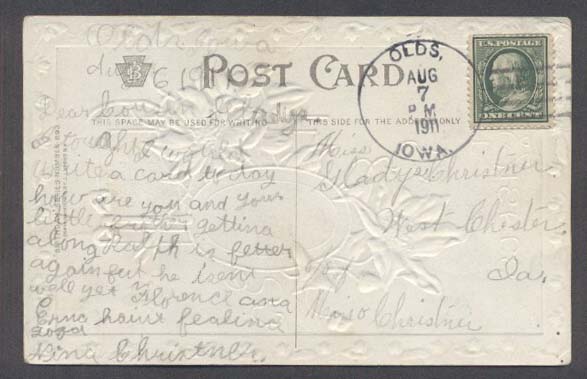 Olds Iowa
6 19
POST CARD
THIS SPACE MAY BE USED FOR WRITING
THIS SIDE FOR THE ADDRESS ONLY
Dear Cousin Gladys
I tought I would
write a card to day
how are you and your
little getting
along Ralph is better
again but he isent
well yet Florence and
Erma haint fealing
good
Nina Christner.
OLDS,
AUG
7
PM
1911
IOWA.
U.S. POSTAGE
ONE CENT
Miss
Gladys Christner
West Chester
Ia.
Christner